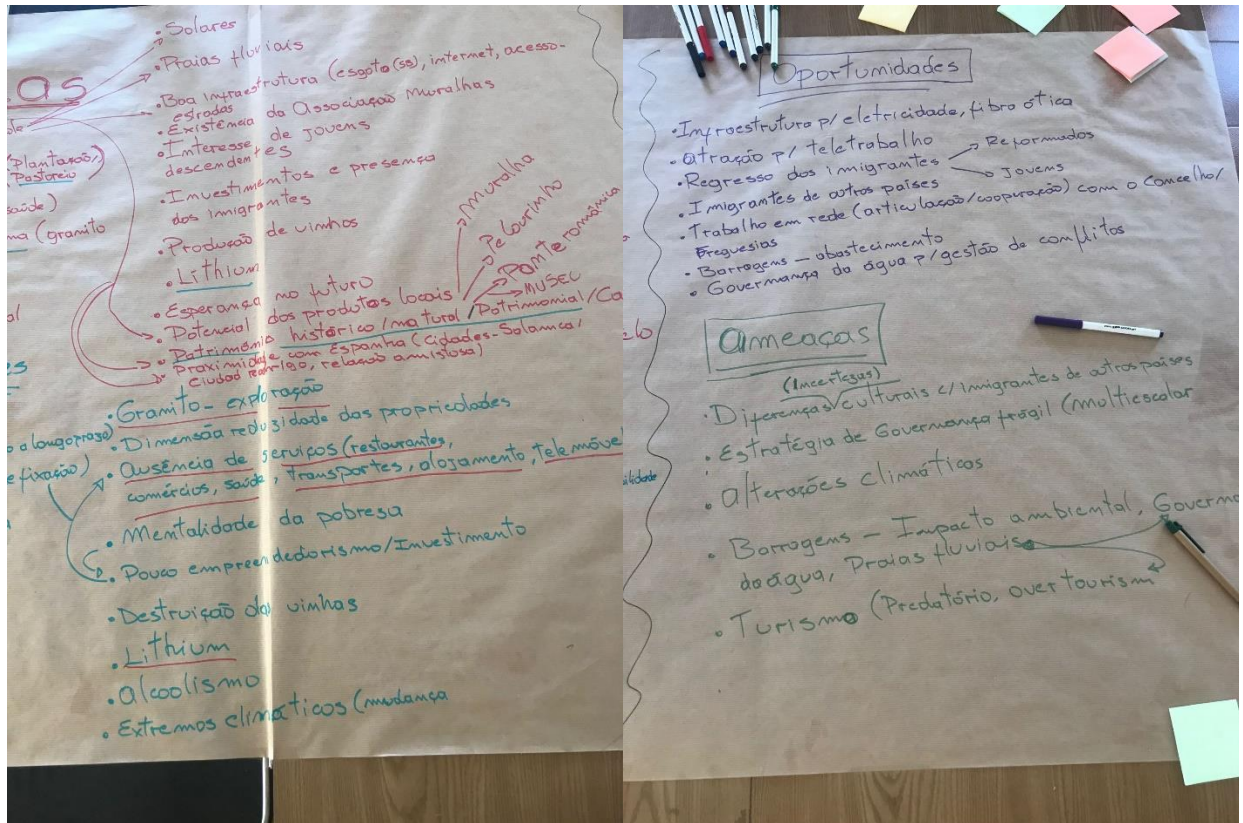 • Solares
• Praias fluviais
• Boa infraestrutura (esgoto(ss), internet, acesso-
estradas
• Existência da Associação Muralhas
• Interesse de jovens
descendentes
• Investimentos e presença
dos imigrantes
• Produção de vinhos
• Lithium
• Esperança no futuro
• Potencial dos produtos locais
Muralha
Pelourinho
Ponte românica
MUSEU
• Património histórico/natural/Patrimonial/Ca
• Proximidade com Espanha (cidades-Solamca/
Ciudad rodrigo, relação amistosa)
as
(Plantação/
Pastoreio
saúde)
ma (granito
es
o a longo prazo)
e fixação)
• Granito - exploração
• Dimensão reduzida das propriedades
• Ausência de serviços (restaurantes,
comércios, saúde, transportes, alojamento, telemóve
• Mentalidade da pobresa
• Pouco empreendedorismo/Investimento
• Destruição das vinhas
• Lithium
• alcoolismo
• Extremos climáticos (mudança
Oportunidades
• Infroestrutura p/ eletricidade, fibra ótica
• atração p/ teletrabalho
• Regresso dos imigrantes
Reformados
Jovens
• Imigrantes de outros países
• Trabalho em rede (articulação/cooperação) com o Concelho/
Freguesias
• Barragens – abastecimento
• Governança da água p/gestão de conflitos
Ameaças
(Incertezas)
• Diferenças culturais c/imigrantes de outros países
• Estratégia de Governança frágil (multiescalar
• alterações climáticas
• Barragens – Impacto ambiental, Governa
da água, Praias fluviais
• Turismo (Predatório, overtourism
ilidade